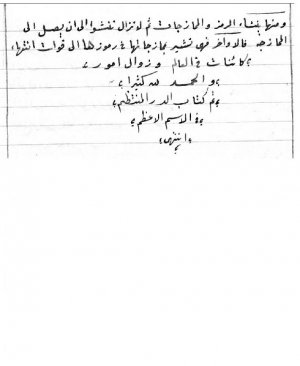 ومنها ينشاء الرمز والممازجات ثم لا تزال تفشوا الى ان يصل الى
الممازجة فالاواخر فهى تشير بممازجاتها و رموزها الى قوات انتهاء
كائنات فى العالم و زوال امور
والحمد لله كثيرا
تم كتاب الدر المنتظم
فى الاسم الاعظم
انتهى